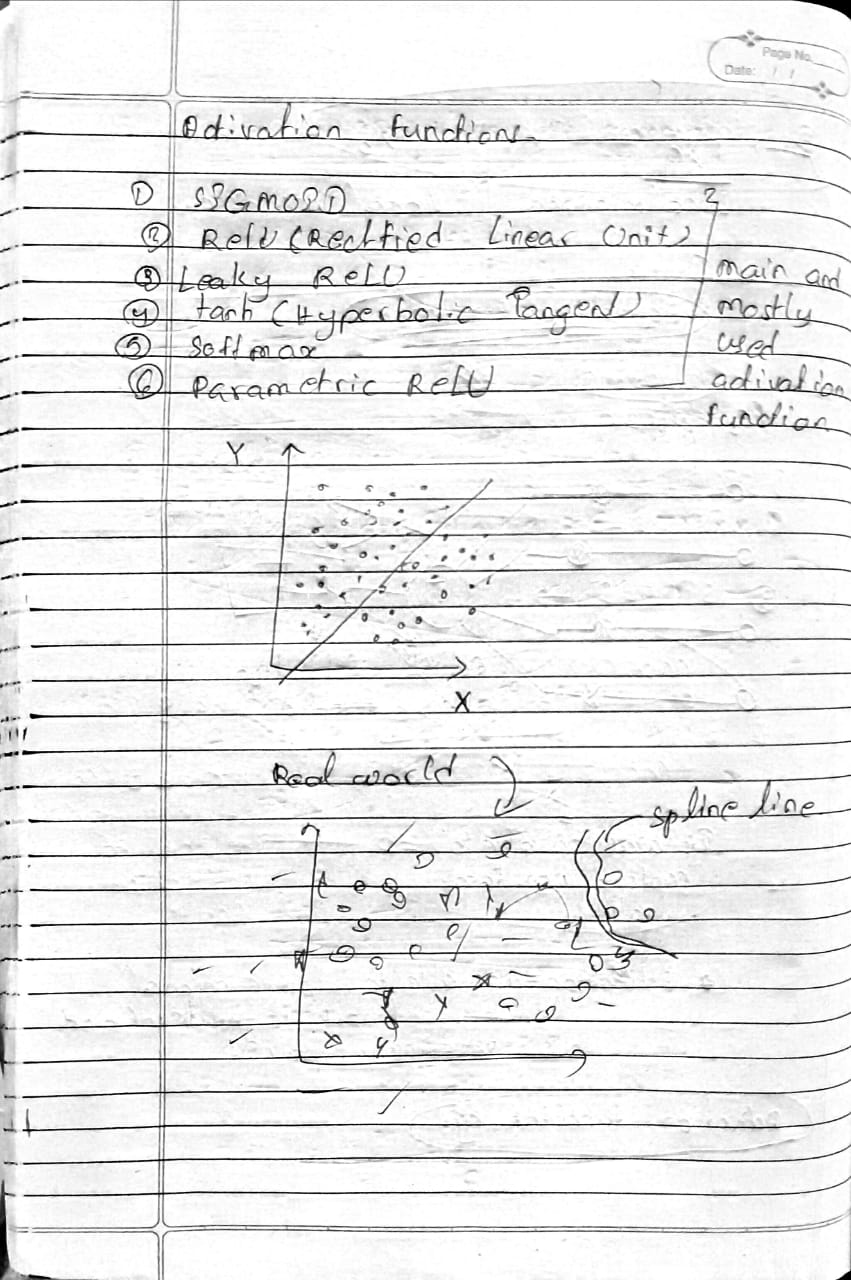 Page No.
Date: / /
Activation functions
① SIGMOID
② Relu (Rectified Linear Unit)
③ Leaky RELU
④ tanh (Hyperbolic Tangent)
⑤ Softmax
⑥ Parametric RELU
main and
mostly
used
activation
function
Y
X
Real world
spline line